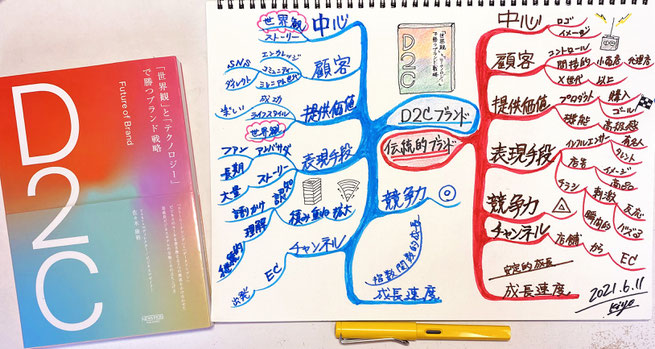 「世界観」と「テクノロジー」
で勝つブランド戦略
Future of Brand
D2C
佐々木 康裕
世界観
ストーリー
中心
SNS
エンゲージ
ダイレクト
コミュニティー
ミレニアル世代
顧客
生しい
成功
ライフスタイル
提供価値
世界観
ファン
アンバサダ
長期
ストーリー
大量
語りかけ
認知
理解
積み重ね
拡大
表現手段
競争力
チャンネル
EC
出発
指数関数的成長
成長速度
「世界観」と「テクノロジー」
で勝つブランド戦略
D2C
D2Cブランド
伝統的ブランド
中心
ロゴ
イメージ
顧客
コントロール
間接的
小売店
代理店
X世代
以上
提供価値
プロダクト
購入
ゴール
機能
高級感
表現手段
インフルエンサー
有名人
タレント
店舗
イメージ
チラシ
商品
刺激
反応
瞬間的
バズる
競争力
チャンネル
店舗
から
EC
安定的成長
成長速度
2021.6.11
Kiyo